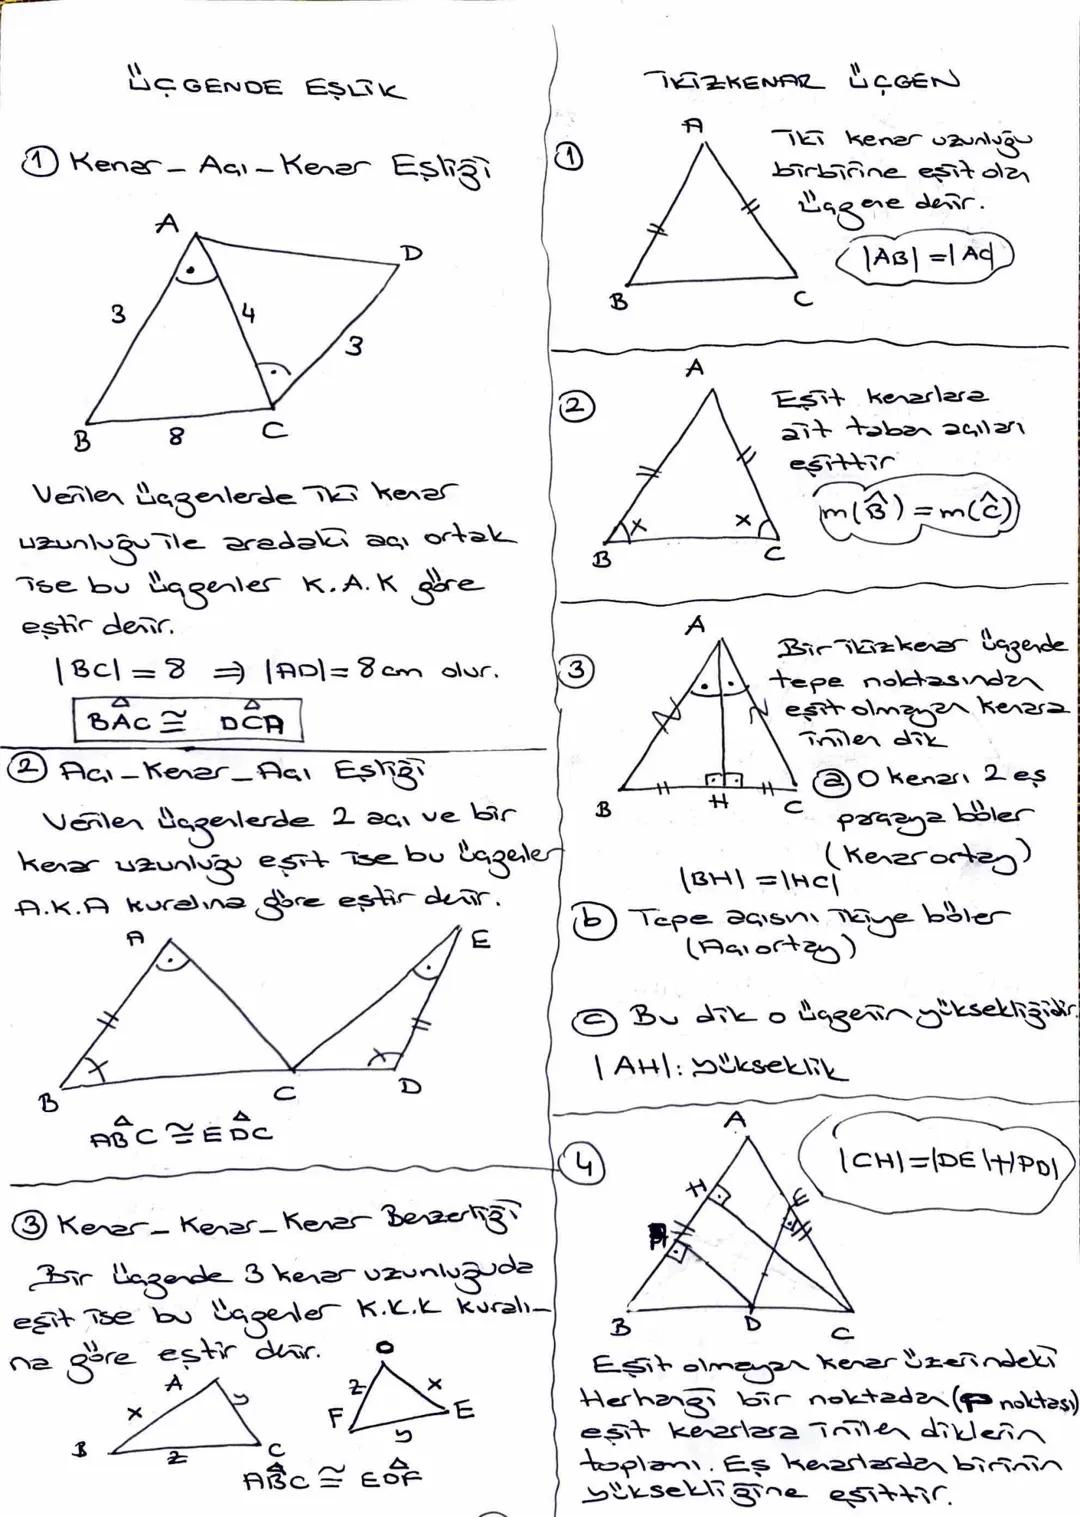 ÜÇGENDE EŞLİK
① Kenar - Açı - Kenar Eşliği
A
D
3
4
3
B
8
C
Verilen üçgenlerde iki kenar
uzunluğu ile aradaki açı ortak
ise bu üçgenler K.A.K göre
eştir denir.
|BC| = 8 ⇒ |AD| = 8 cm olur.
BAC ≅ DCA
② Açı - Kenar - Açı Eşliği
Verilen üçgenlerde 2 açı ve bir
kenar uzunluğu eşit ise bu üçgenler
A.K.A kuralına göre eştir denir.
A
E
x
x
B
C
D
ABC ≅ EDC
③ Kenar - Kenar - Kenar Benzerliği
Bir üçgende 3 kenar uzunluğuda
eşit ise bu üçgenler K.K.K kuralı-
na göre eştir denir.
A
x
y
B
z
C
O
z
x
F
E
y
ABC ≅ EOF
İKİZKENAR ÜÇGEN
①
A
B
C
İki kenar uzunluğu
birbirine eşit olan
üçgene denir.
|AB| = |AC|
②
A
x
x
B
C
Eşit kenarlara
ait taban açıları
eşittir
m(B̂) = m(Ĉ)
③
A
B
H
C
Bir ikizkenar üçgende
tepe noktasından
eşit olmayan kenara
inilen dik
ⓐ O kenarı 2 eş
parçaya böler
(Kenarortay)
|BH| = |HC|
ⓑ Tepe açısını ikiye böler
(Açıortay)
ⓒ Bu dik o üçgenin yüksekliğidir.
|AH|: yükseklik
④
A
H
E
B
D
C
|CH| = |DE| + |PD|
Eşit olmayan kenar üzerindeki
Herhangi bir noktadan ( noktası)
eşit kenarlara inilen diklerin
toplamı. Eş kenarlardan birinin
yüksekliğine eşittir.